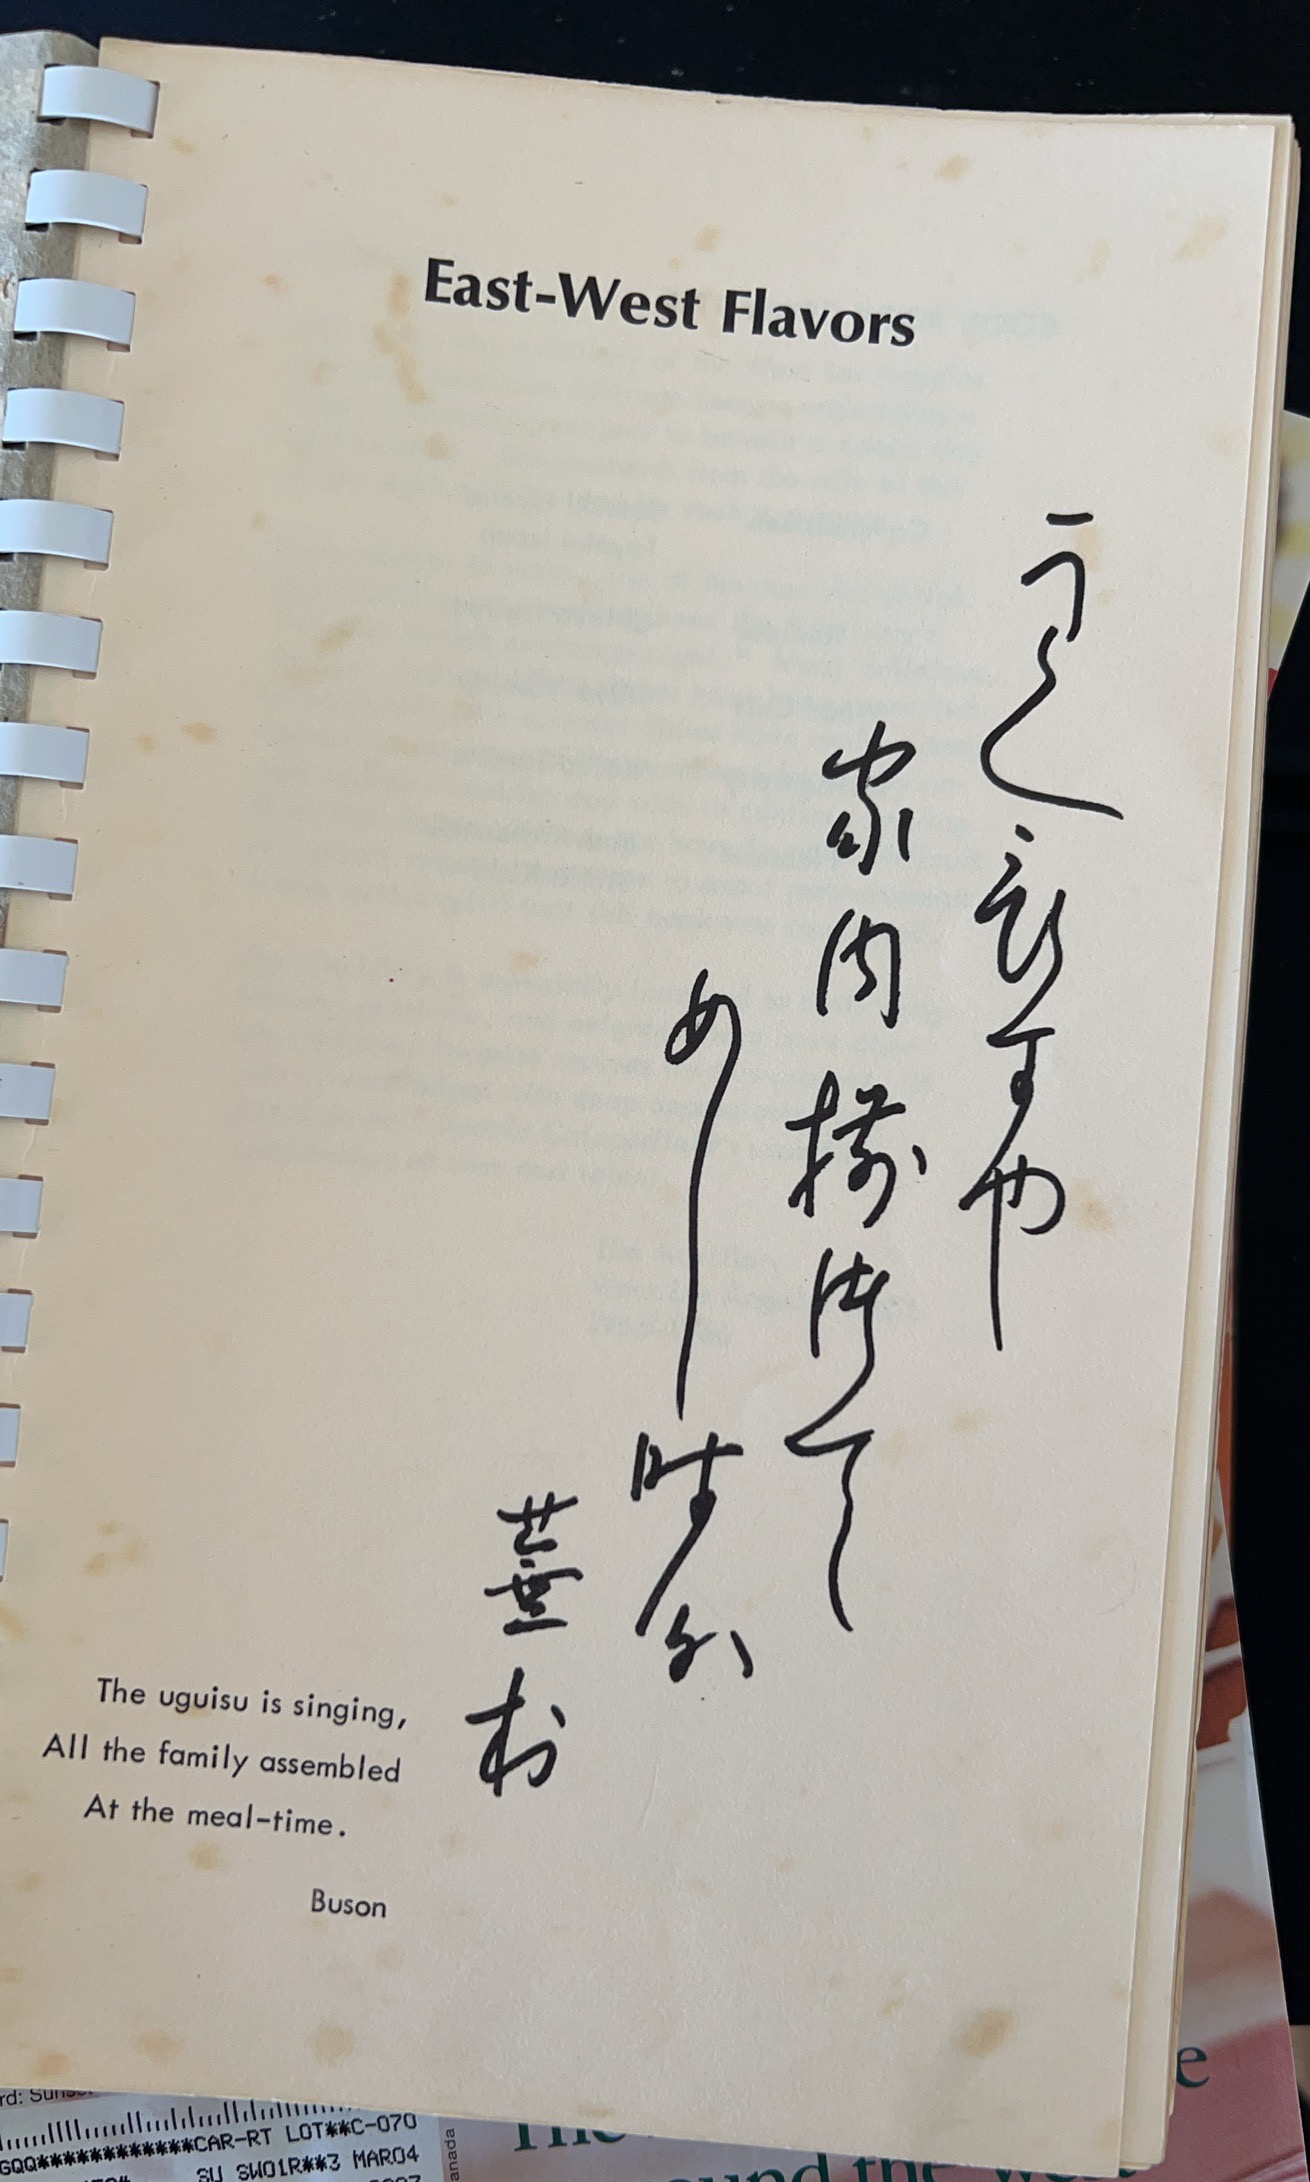 East-West Flavors
うくひすや
家内揃ふて
めし時分
蕪村
The uguisu is singing,
All the family assembled
At the meal-time.
Buson
CAR-RT LOT**C-070
SU SW01R**3 MAR04
The
ound the we